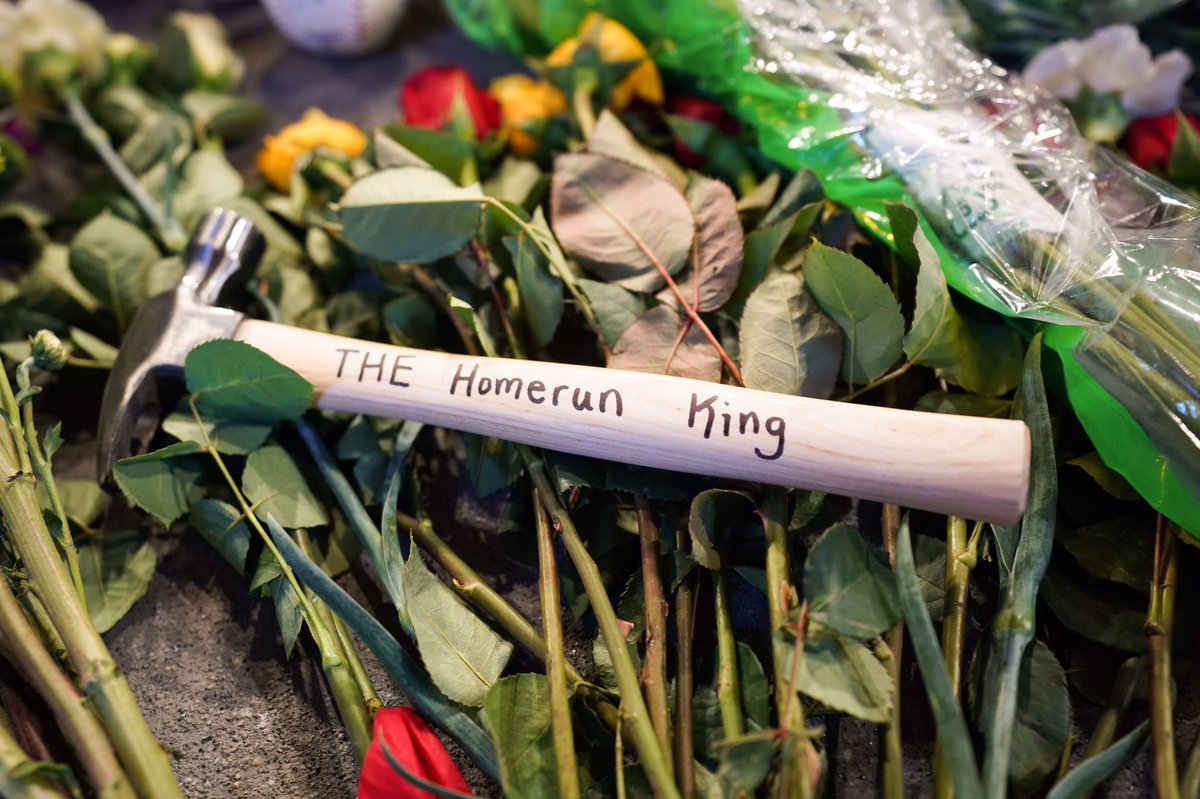 THE Homerun King